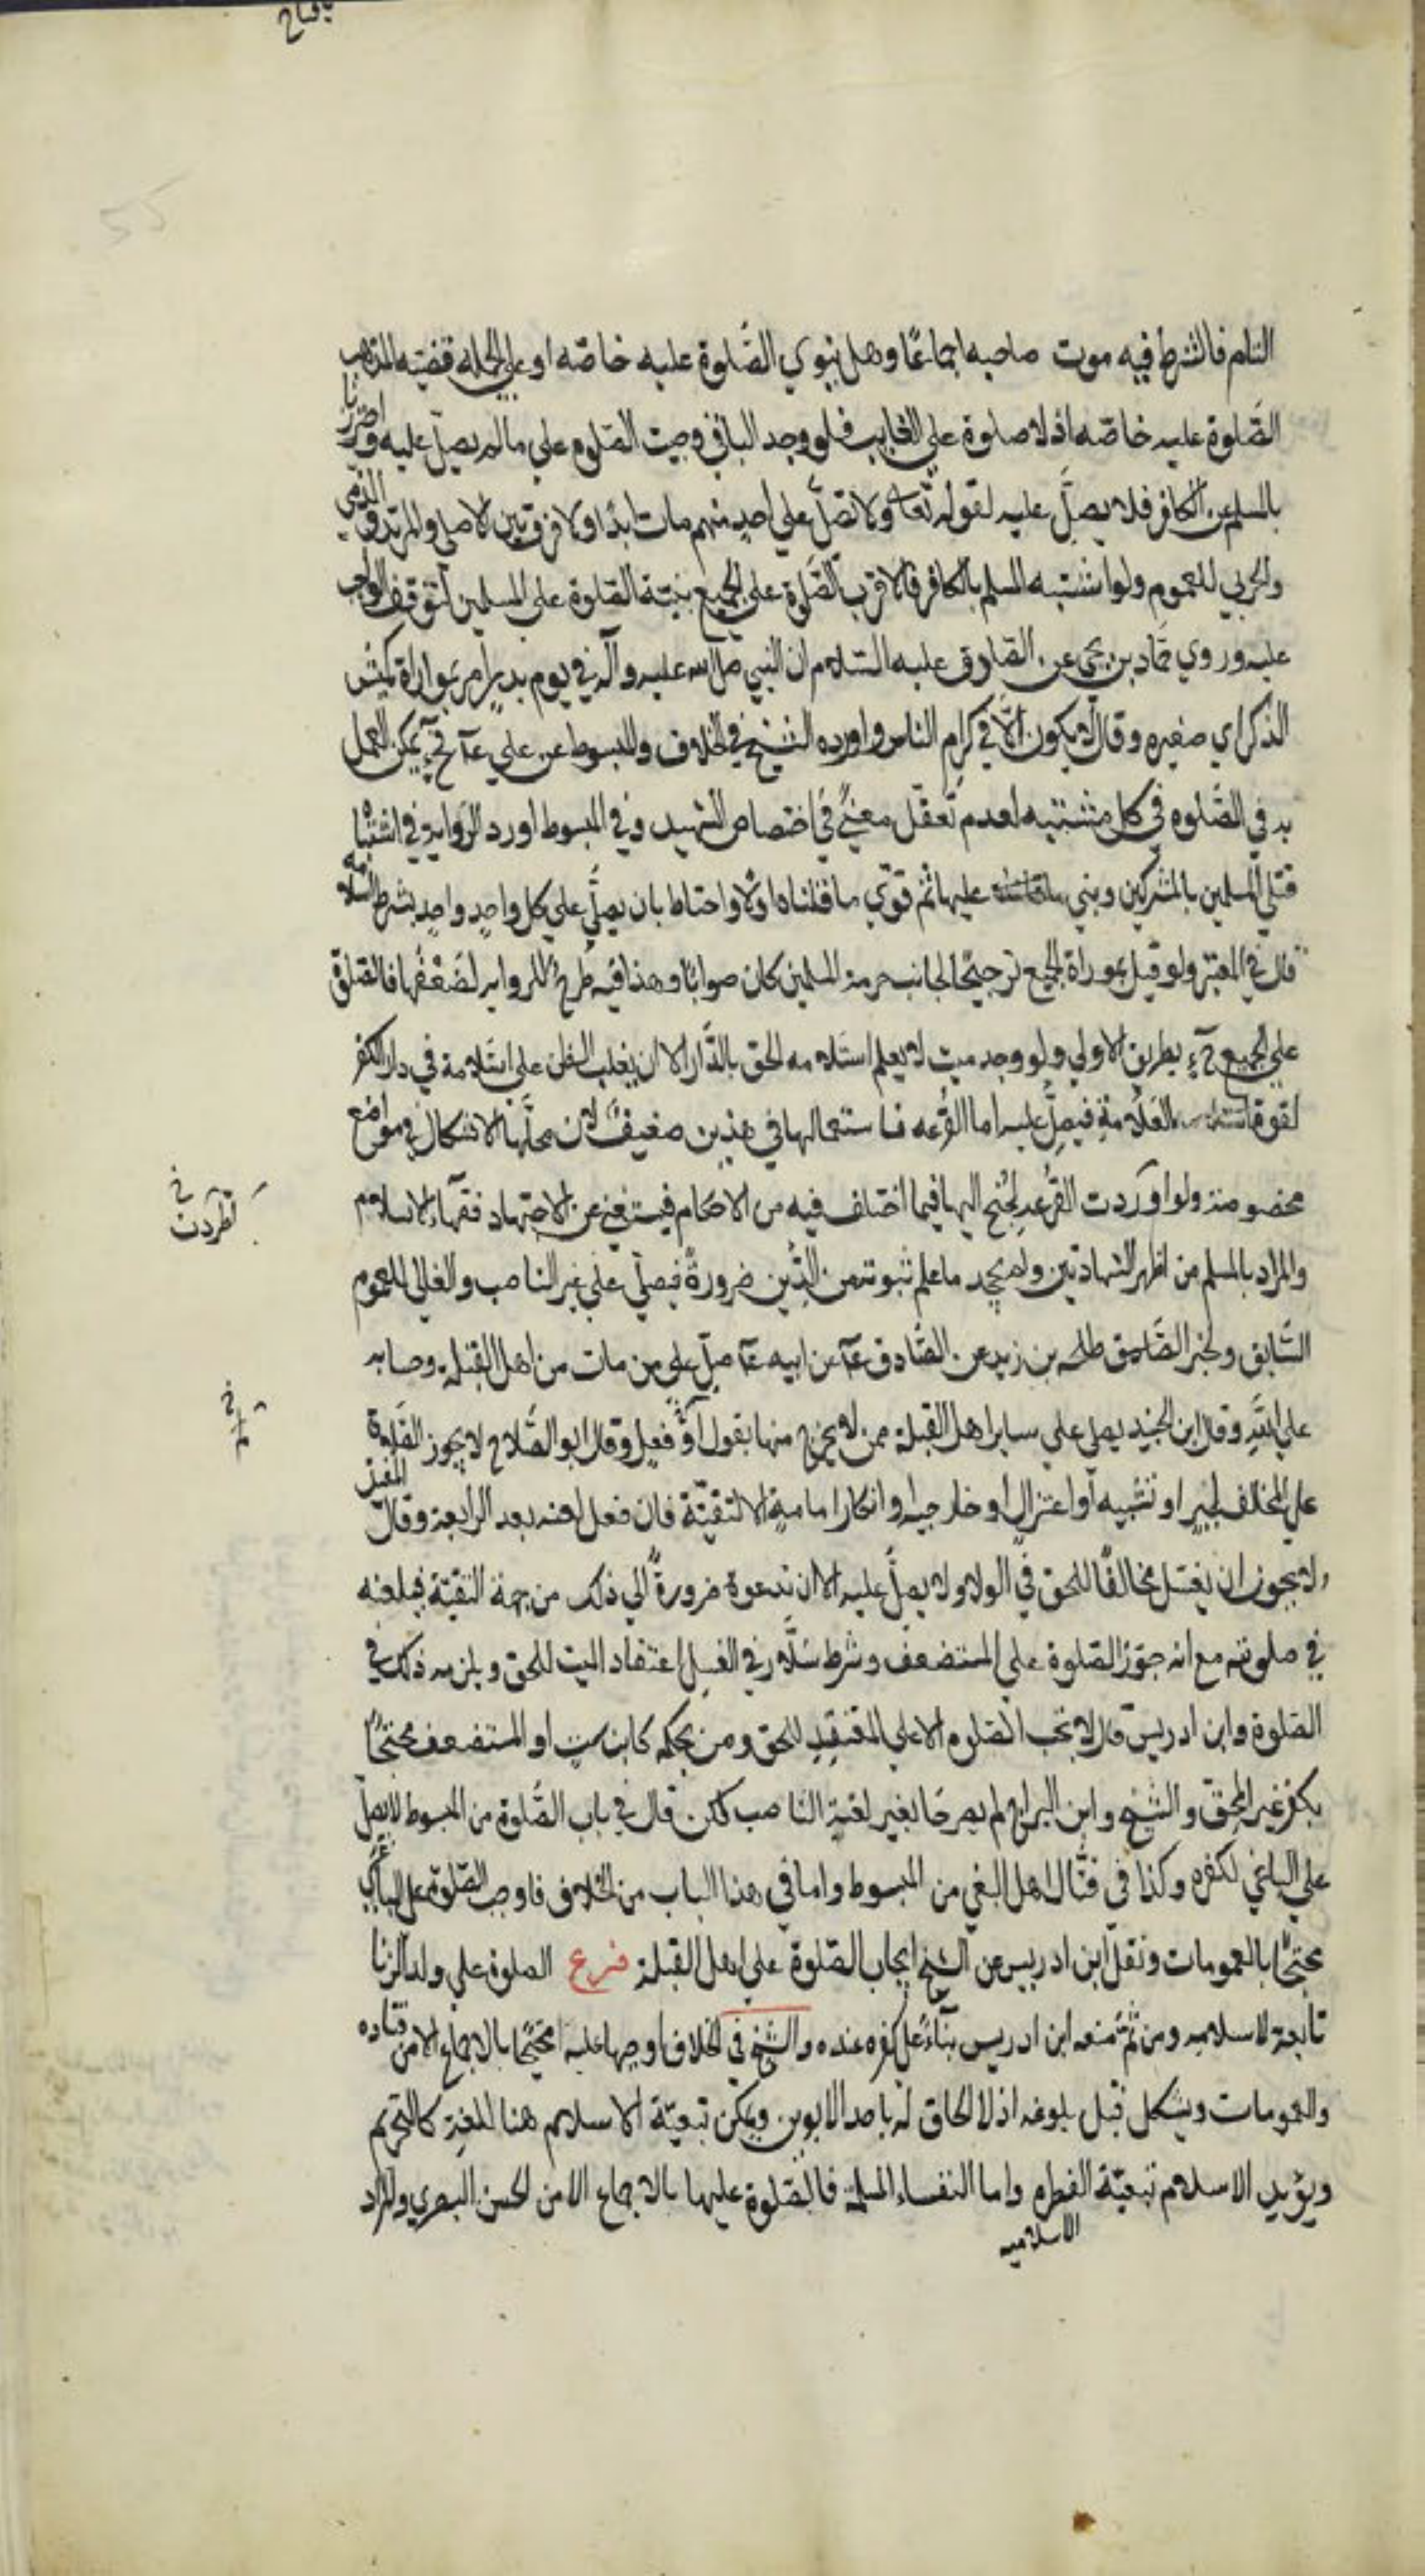 التام فالشرط فيه موت صاحبه اجماعًا وهل ينوي الصّلوة عليه خاصّه او علي الجمله قضيّه المذهب
الصّلوة عليه خاصّه اذ لا صلوة علي الغايب فلو وجد الباقي وجبت الصلوه علي ما لم يصلّ عليه واحترزنا
بالمسلم عن الكافر فلا يصلّ عليه لقوله تعا ولا تصلّ علي احد منهم مات ابدًا ولا فرق بين الاصلي والمرتد والذمي
والحربي للعموم ولو اشتبه المسلم بالكافر فالاقرب الصّلوة علي الجميع بنيّة الصّلوة علي المسلمين لتوقف الواجب
عليه وروي حمّاد بن يحيى عن الصّادق عليه السّلام ان النبي صلى الله عليه وآله في يوم بدر امر بمواراة كميش
الذكر اي صغيره وقال لا يكون الّا في كرام الناس واورده الشيخ في الخلاف والمبسوط عن علي ع فح يمكن العمل
به في الصّلوه في كل مشتبه لعدم تعقّل معنًي في اختصاص الشهيد وفي المبسوط اورد الرّوايه في اشتباه
قتلي المسلمين بالمشركين وبني عليها ثم قوّي ما قلناه اولًا واحتاط بان يصلّي علي كل واحدٍ واحدٍ بشرط اسلامه
قال في المعتبر ولو قيل بموراة الجميع ترجيحًا لجانب حرمة المسلمين كان صوابًا وهذا فيه طرحٌ للروايه لضعفها فالصلوة
علي الجميع ح بطريق الاولي ولو وجد ميت لا يعلم اسلامه الحق بالدّار الا ان يغلب الظن علي اسلامه في دار الكفر
لقوة العلامة فيصلّ عليه اما القرعه فاستعمالها في هذين ضعيفٌ لان محلّها الاشكال في مواضع
مخصوصة ولو اوردت القرعه لجنح اليها فيما اختلف فيه من الاحكام فيستغني عن الاجتهاد فقهاء الاسلام
اطردت خ
والمراد بالمسلم من اظهر الشهادتين ولم يجحد ما علم ثبوته من الدّين ضرورةً فيصلّ علي غير الناصب والغالي للعموم
السّابق ولخبر طلحه بن زيد عن الصّادق ع عن ابيه ع صلّ علي من مات من اهل القبله وحسابه
علي الله وقال ابن الجنيد يصلي علي ساير اهل القبلة ممن لا يخرج منها بقول او فعل وقال ابو الصّلاح لا يجوز الصّلوة
علي المخالف لجبر او تشبيه او اعتزال او خارجيه او انكار اماميه الا لتقيّة فان فعل لعنه بعد الرابعة وقال المفيد
ولا يجوز ان يغسل مخالفًا للحق في الولاء ولا يصلّ عليه الا ان تدعوه ضرورةٌ الي ذلك من جهة التقيّة فيلعنه
في صلوته مع انه جوّز الصّلوة علي المستضعف وشرط سلّار في الغسل اعتقاد الميت للحق ويلزمه ذلك في
الصّلوة وابن ادريس قال لا تجب الصّلوه الا علي المعتقد للحق ومن بحكمه كابن ستٍ او المستضعف محتجًا
بكفر غير المحقّ والشيخ وابن البراج لم يصرحا بغير لعنة الناصب لكن قال في باب الصّلوة من المبسوط لا يصلّ
علي الباغي لكفره وكذا في قتال اهل البغي من المبسوط واما في هذا الباب من الخلاف فاوجب الصّلوة علي الباغي
محتجًّا بالعمومات ونقل ابن ادريس عن الشيخ ايجاب الصّلوة علي اهل القبلة فرع الصلوة علي ولد الزنا
تابعة لاسلامه ومن ثمّ منعه ابن ادريس بناءً علي كفره عنده والشيخ في الخلاف اوجبها عليه محتجًا بالاجماع الا من قتاده
والعمومات ويشكل قبل بلوغه اذ لا الحاق له باحد الابوين ويمكن تبعيّة الاسلام هنا للغة كالتحريم
ويؤيد الاسلام تبعيّة الفطره واما النفساء المسلمة فالصّلوة عليها بالاجماع الا من الحسن البصري والمراد
الاسلاميه